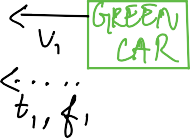 GREEN
CAR
V₁
t₁, f₁